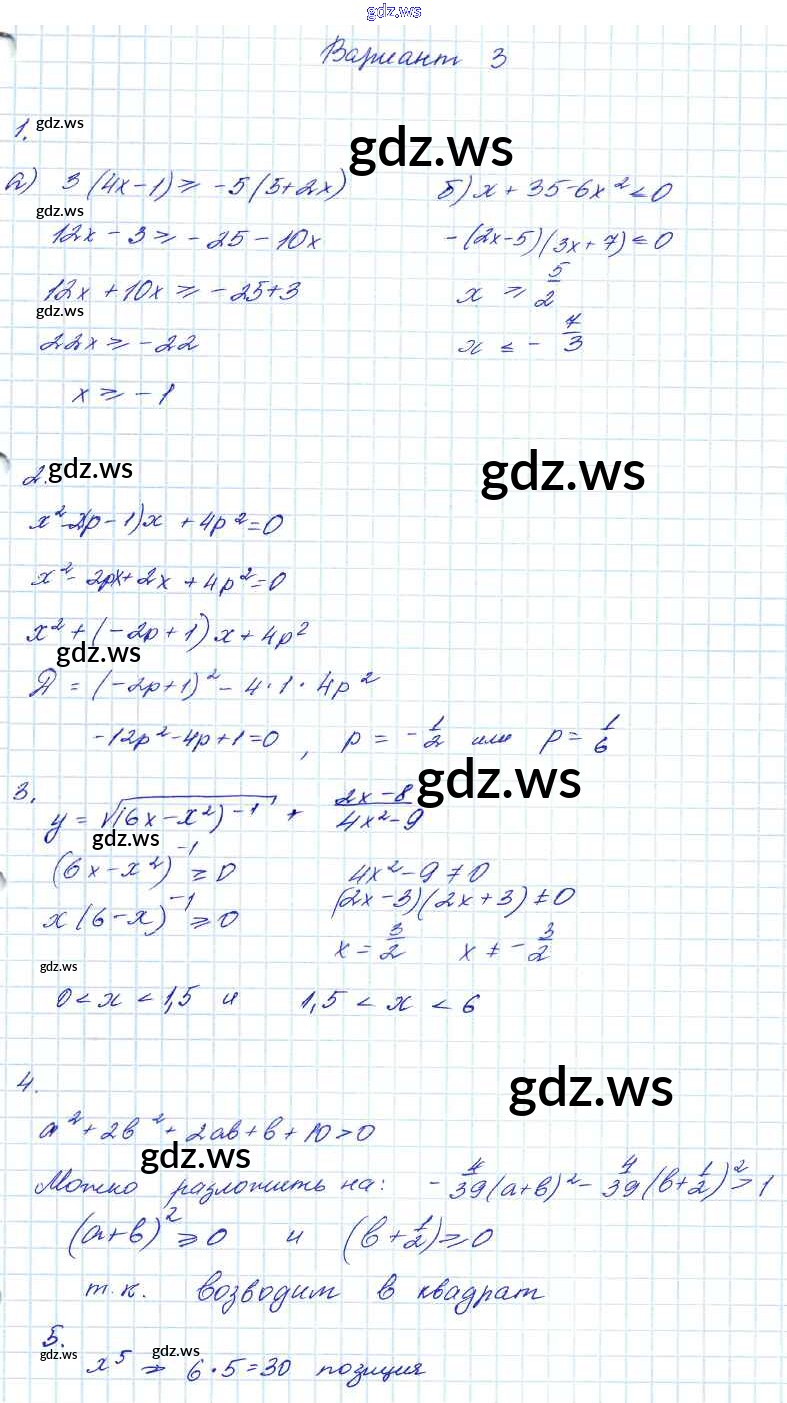 gdz.ws
Вариант 3
1. gdz.ws
gdz.ws
а) 3(4x-1) ≥ -5(5+2x) б) x + 35-6x² < 0
gdz.ws
12x - 3 ≥ -25 - 10x -(2x-5)(3x+7) ≤ 0
12x + 10x ≥ -25+3 x ≥ 5/2
gdz.ws
22x ≥ -22 x ≤ - 7/3
x ≥ -1
2. gdz.ws gdz.ws
x² - 2(p-1)x + 4p² = 0
x² - 2px + 2x + 4p² = 0
x² + (-2p+1)x + 4p²
gdz.ws
Д = (-2p+1)² - 4·1·4p²
-12p²-4p+1=0, p = -1/2 или p = 1/6
gdz.ws
3. y = √(6x-x²)⁻¹ + (2x-8)/(4x²-9)
gdz.ws
(6x-x²)⁻¹ ≥ 0 4x²-9 ≠ 0
x(6-x)⁻¹ ≥ 0 (2x-3)(2x+3) ≠ 0
x = 3/2 x ≠ - 3/2
gdz.ws
0 < x < 1,5 и 1,5 < x < 6
4. gdz.ws
a² + 2b² + 2ab + b + 10 > 0
gdz.ws
Можно разложить на: - 4/39 (a+b)² - 4/39 (b+1/2)² > 1
(a+b)² ≥ 0 и (b+1/2) ≥ 0
т.к. возводим в квадрат
5.
gdz.ws gdz.ws
x⁵ ⇒ 6·5=30 позиция